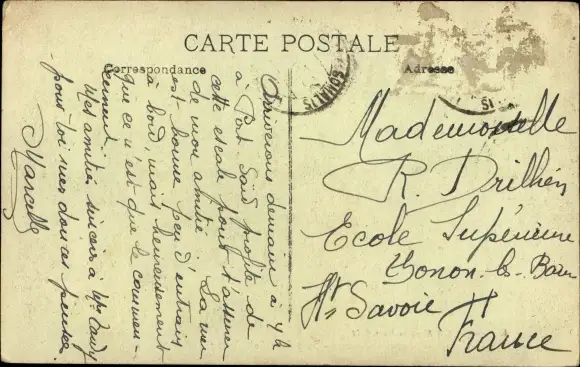 CARTE POSTALE
Correspondance
Adresse
Arriverons demain à 4 h
à Port Saïd profite de
cette escale pour t'assurer
de mon amitié. La mer
est bonne peu d'entrain
à bord, mais heureusement
que ce n'est que le commen-
cement.
Mes amitiés sincères à Mme
pour toi mes douces pensées.
Marcelle
Mademoiselle
R. Drilhén
Ecole Supérieure
Tonon-les-Bains
Hte Savoie
France